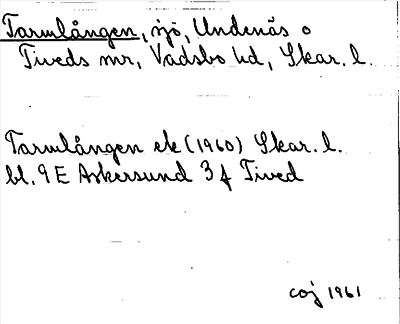 Tarmlången, sjö, Undenäs o
Tiveds snr, Vadsbo hd, Skar. l.
Tarmlången ek (1960) Skar. l.
bl. 9 E Askersund 3 f Tived
coj 1961